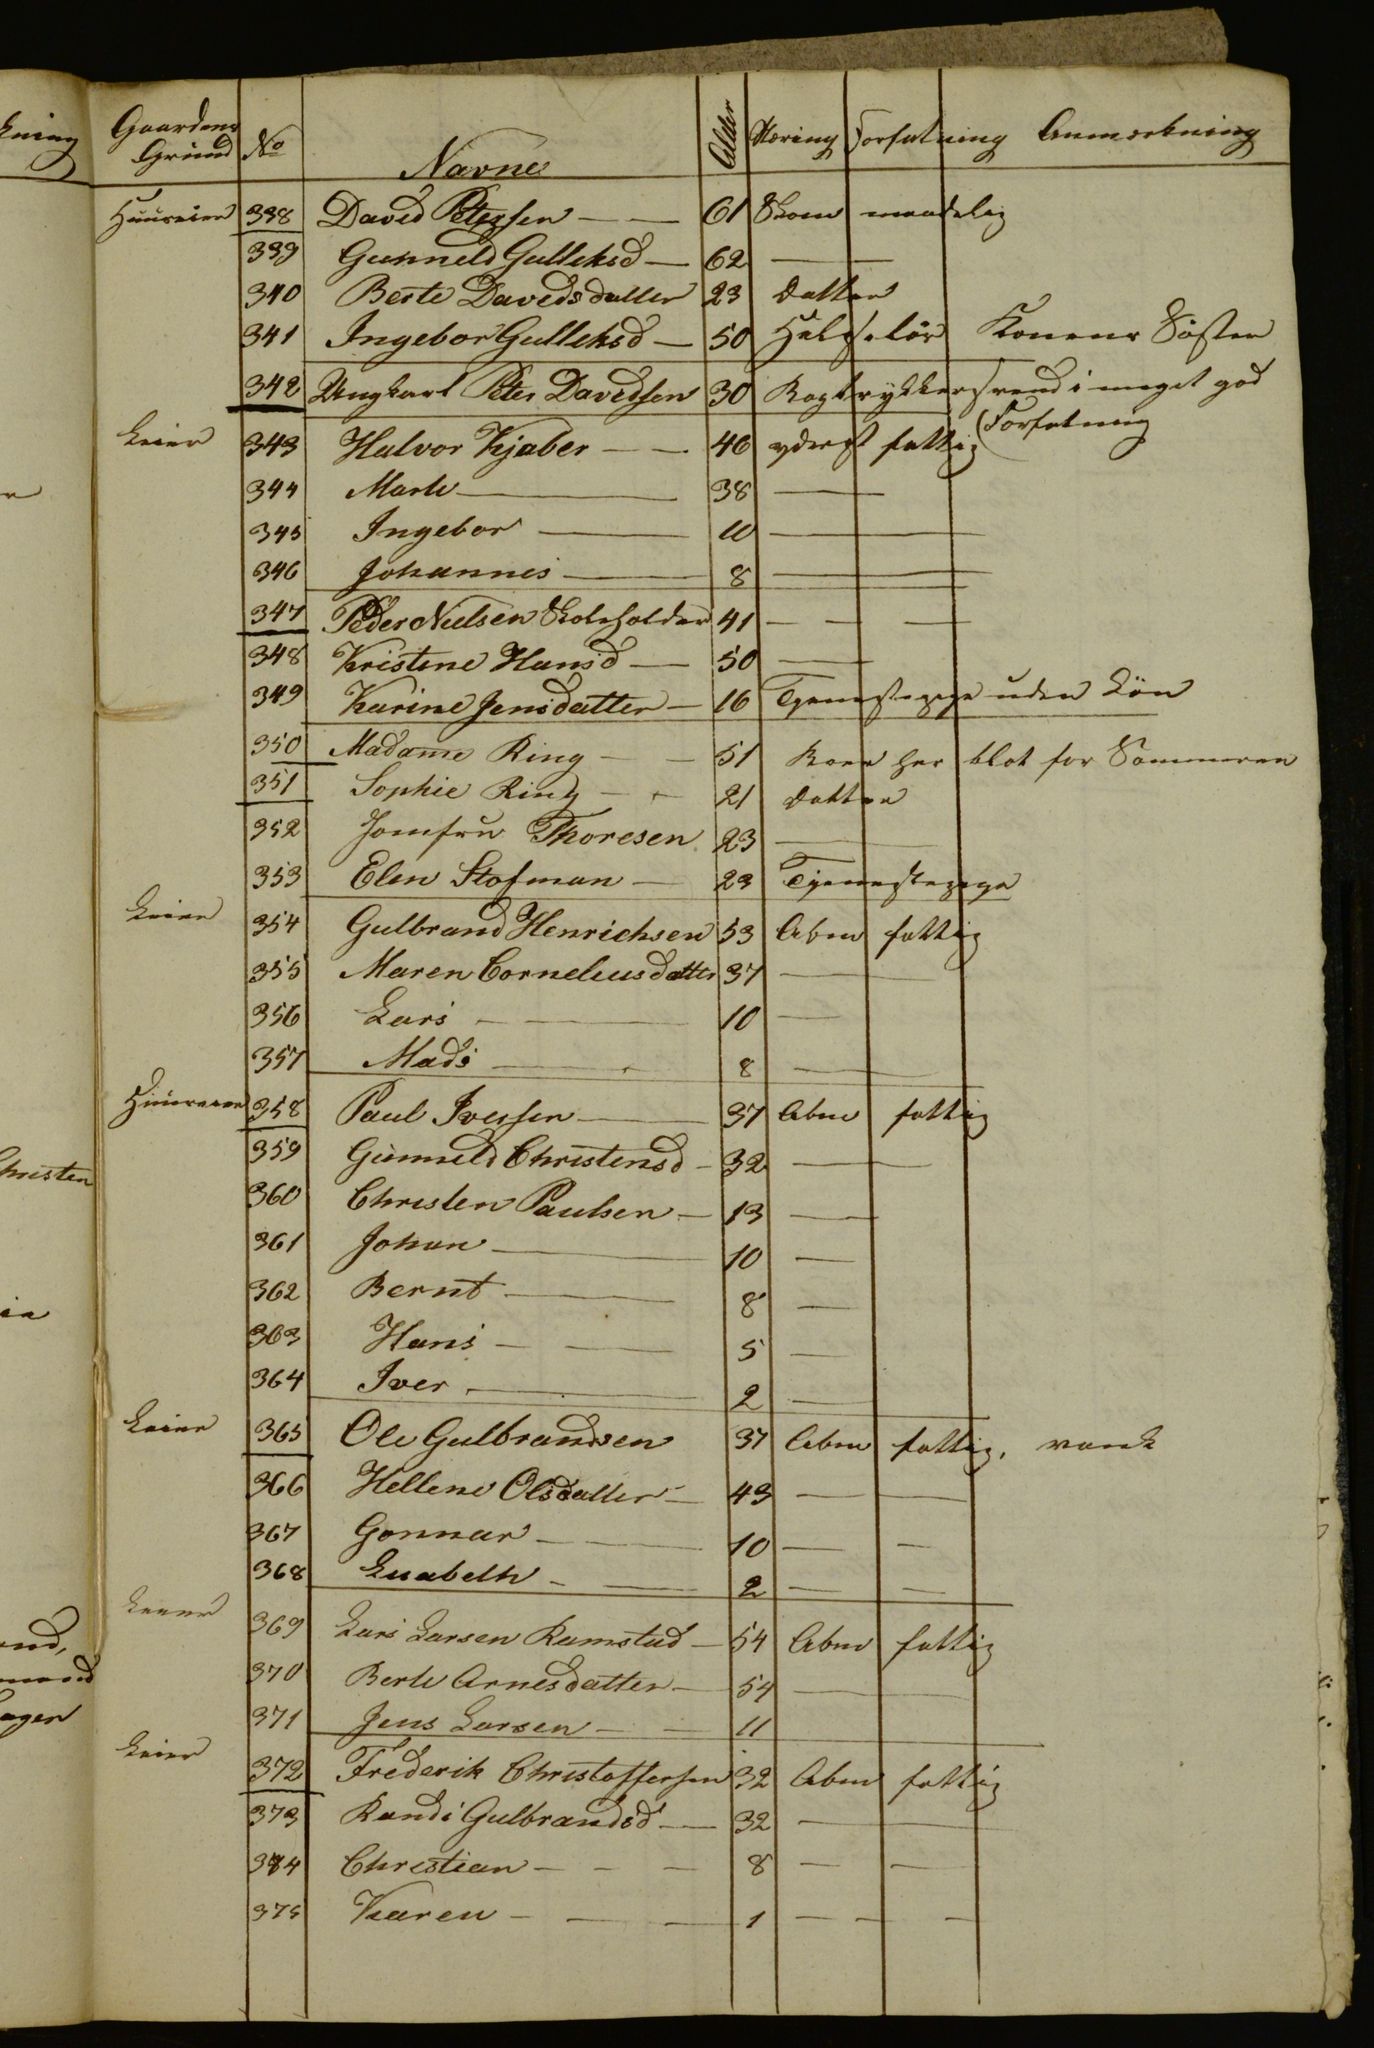 Gaardens Grund No Navne Alder Næring Forfatning Anmærkning
Huuseier 338 David Petersen — — 61 Skom maadelig
339 Gunneld Gulleksd — 62 —
340 Berte Davedsdatter 23 Datter
341 Ingebor Gulleksd — 50 Helseløs Konens Søster
342 Ungkarl Peter Davidsen 30 Bogtrykkersvend i meget god
Forfatning
Leier 343 Halvor Kjøber — — 46 yderst fattig
344 Marte — 38 —
345 Ingebor — 10 —
346 Johannes — 8 —
347 Peder Nielsen Skoleholder 41 — — —
348 Kristine Hansd — 50 —
349 Karine Jensdatter — 16 Tjenestepige uden Løn
350 Madame Ring — — 51 Boer her blot for Sommeren
351 Sophie Ring — — 21 Datter
352 Jomfru Thoresen 23 —
353 Elen Stofman — 23 Tjenestepige
Leier 354 Gulbrand Henrichsen 53 Abm fattig
355 Maren Corneliusdatter 37 —
356 Lars — — 10 —
357 Mads — 8 —
Huuseier 358 Paul Iversen — 37 Abm fattig
359 Gunneld Christensd — 32 —
360 Christen Paulsen — 13 —
361 Johan — 10 —
362 Bernt — 8 —
363 Hans — — 5 —
364 Iver — 2 —
Leier 365 Ole Gulbrandsen 37 Abm fattig, vank
366 Hellene Olsdatter — 43 — —
367 Gonnar — — 10 — —
368 Lisabeth — — 2 — —
Leier 369 Lars Larsen Ramstad — 54 Abm fattig
370 Berte Arnesdatter — 54 —
371 Jens Larsen — — 11
Leier 372 Frederik Christoffersen 32 Abm fattig
373 Randi Gulbrandsd — 32 —
374 Christian — — — 8 — —
375 Karen — — — 1 — — —